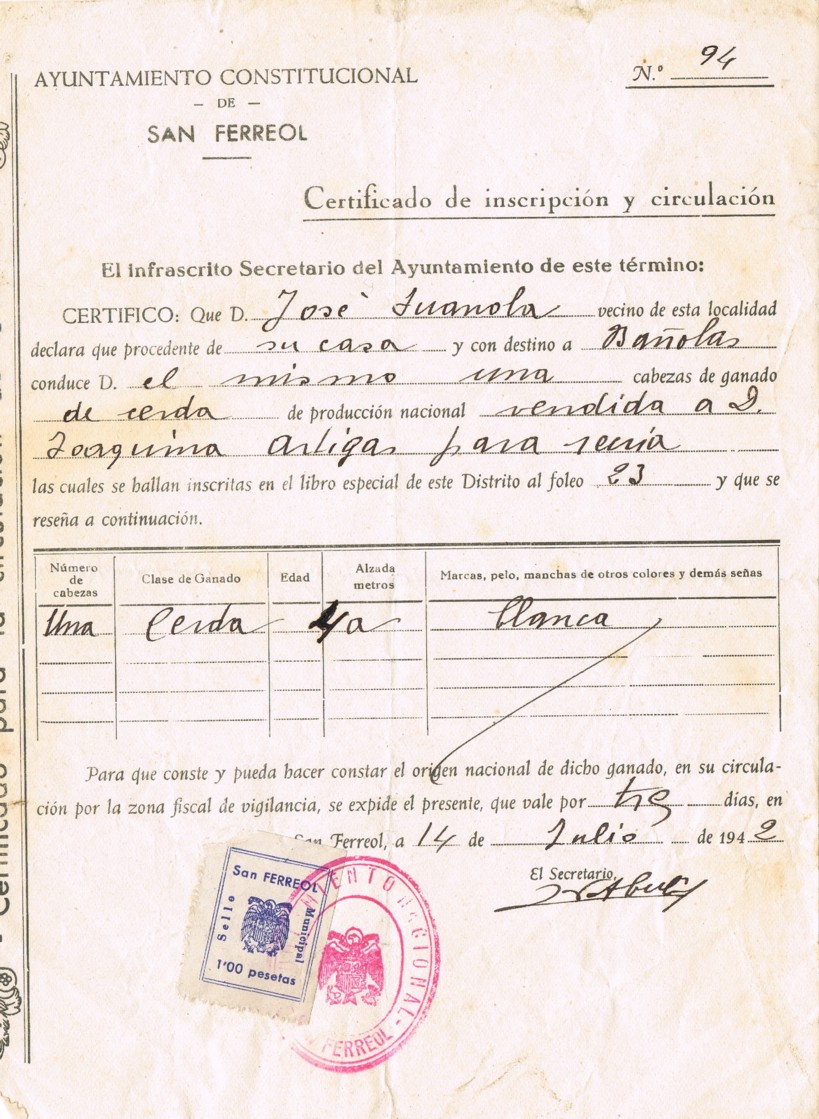 AYUNTAMIENTO CONSTITUCIONAL
– DE –
SAN FERREOL
N.º 94
Certificado de inscripción y circulación
El infrascrito Secretario del Ayuntamiento de este término:
CERTIFICO: Que D. José Juanola vecino de esta localidad
declara que procedente de su casa y con destino a Bañolas
conduce D. el mismo una cabezas de ganado
de cerda de producción nacional vendida a D.
Joaquima Artigas para recria
las cuales se hallan inscritas en el libro especial de este Distrito al foleo 23 y que se
reseña a continuación.
Número de cabezas Clase de Ganado Edad Alzada metros Marcas, pelo, manchas de otros colores y demás señas
Una Cerda 4 a blanca
Para que conste y pueda hacer constar el origen nacional de dicho ganado, en su circula-
ción por la zona fiscal de vigilancia, se expide el presente, que vale por tres días, en
San Ferreol, a 14 de Julio de 1942
El Secretario,
San FERREOL
Sello
Municipal
1'00 pesetas
MIENTO NACIONAL -
FERREOL